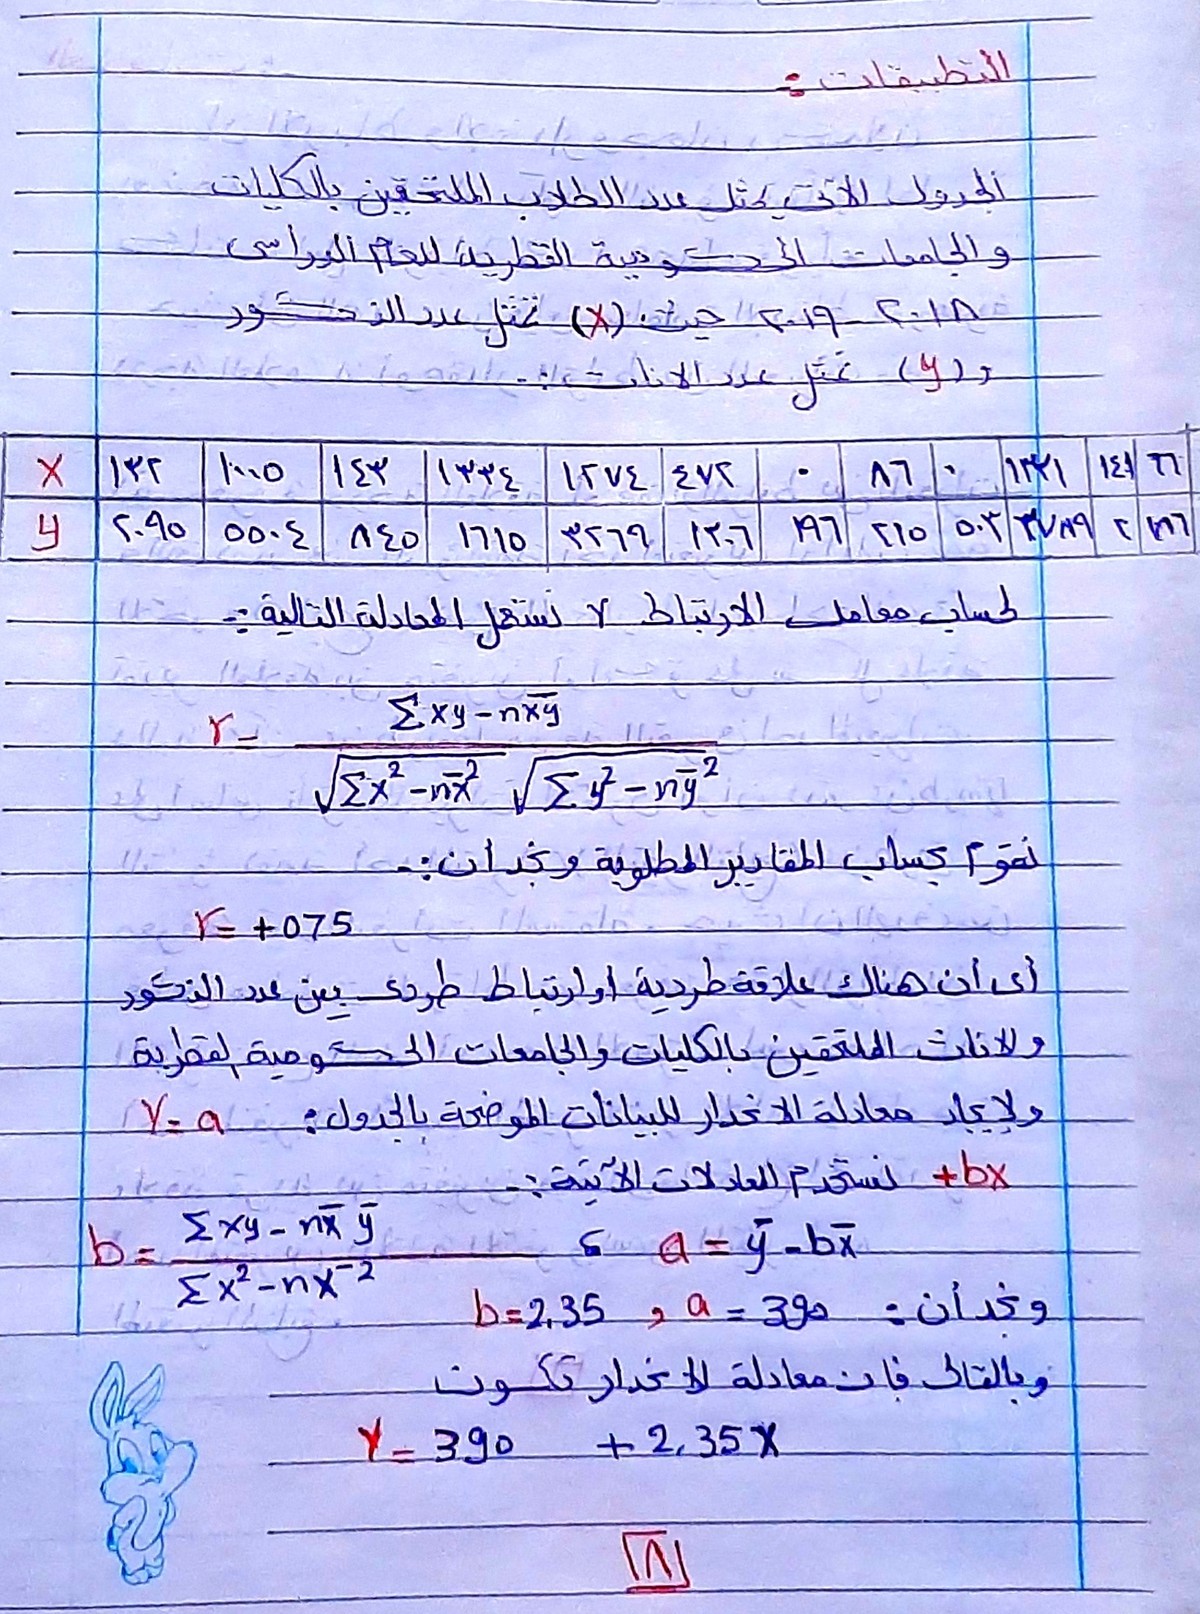 التطبيقات :-
الجدول الاتى يمثل عدد الطلاب الملتحقين بالكليات
والجامعات الحكومية القطرية للعام الدراسى
٢٠١٨ - ٢٠١٩ حيث (X) تمثل عدد الذكور
و (y) تمثل عدد الاناث :-
X ١٣٢ ١٠٠٥ ١٤٣ ١٣٣٤ ١٢٧٤ ٤٧٢ ٠ ٨٦ ٠ ١٣٢١ ١٤١ ٦٦
y ٢٠٩٥ ٥٥٠٤ ٨٤٥ ١٦١٥ ٣٢٦٩ ١٢٠٦ ١٩٦ ٢١٥ ٥٠٢ ٣٧٨٩ ٢ ١٨٦
لحساب معامل الارتباط r نستعمل المعادلة التالية :-
r = Σxy - nx̄ȳ / √Σx² - nx̄² √Σy² - nȳ²
نقوم بحساب المقادير المطلوبة ونجد أن :-
r = +075
أى أن هناك علاقة طردية او ارتباط طردى بين عدد الذكور
ولاناث الملتحقين بالكليات والجامعات الحكومية لقطرية
ولإيجاد معادلة الانحدار للبيانات الموضحة بالجدول : Y = a
+bx نستخدم المعادلات الآتية :-
b = Σxy - nx̄ ȳ / Σx² - nx⁻² ، a = ȳ - bx̄
ونجد أن : a = 390 , b = 2.35
وبالتالى فان معادلة الانحدار تكون
Y = 390 + 2.35X
٨